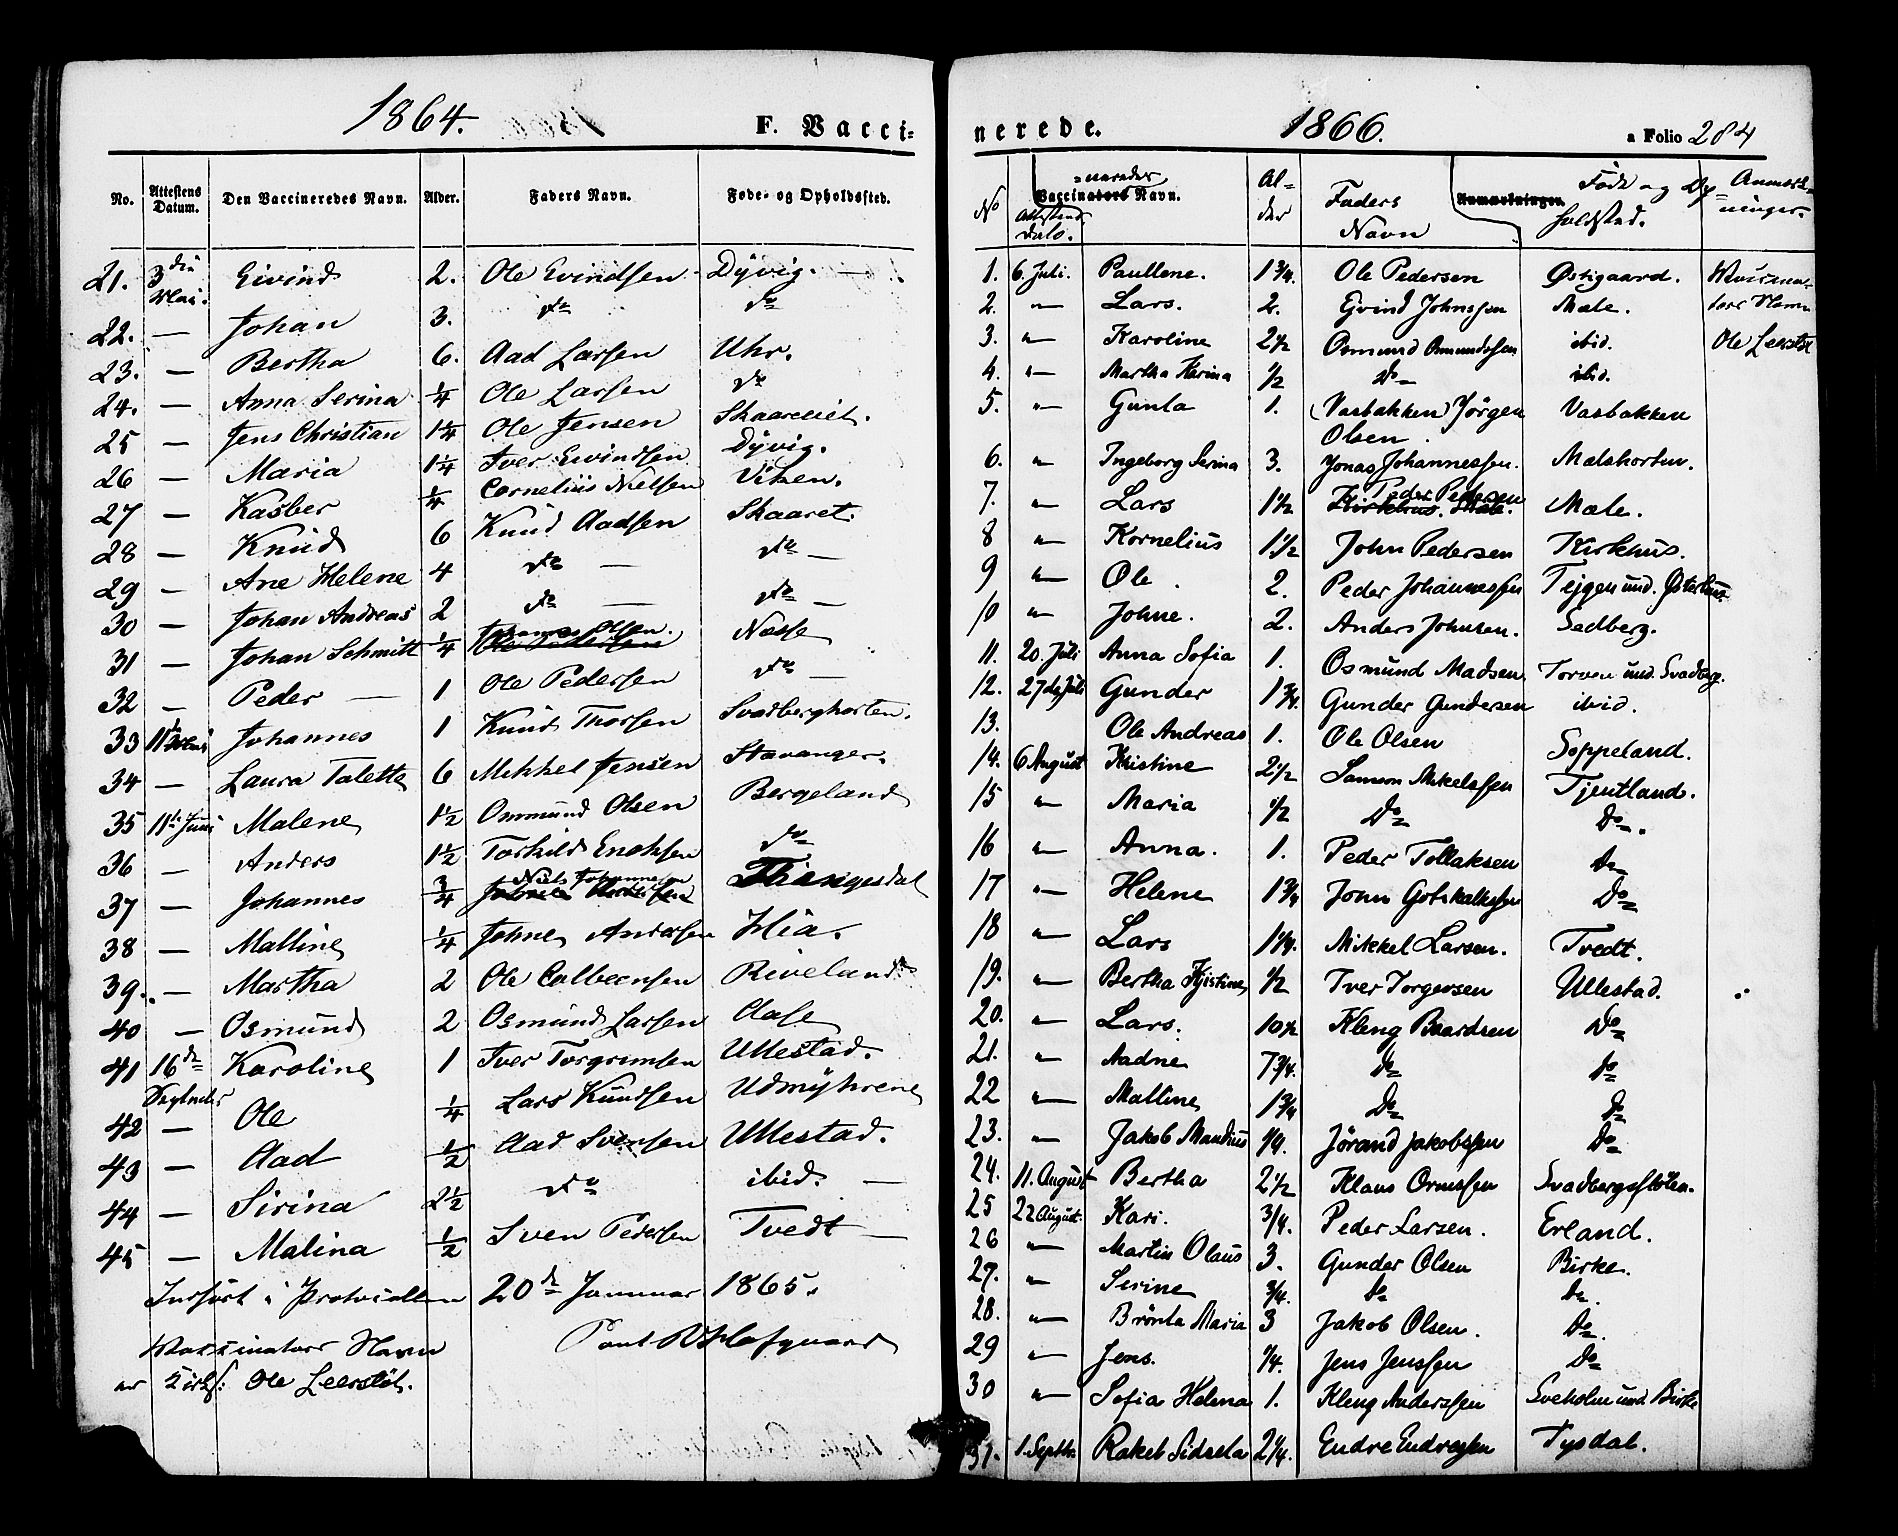 1864. F. Vacci-
No. Attestens Datum. Den Vaccineredes Navn. Alder. Faders Navn. Føde- og Opholdssted.
21. 3die Mai. Eivind 2. Ole Evindsen Dyvig. —
22. — Johan 3. do do
23. — Bertha 6. Aad Larsen Uhr.
24. — Anna Serina 1/4 Ole Larsen do
25 — Jens Christian 1 1/4 Ole Jensen
26 — Maria 1 1/4 Iver Eivindsen Dyvig.
27 — Kasber 1/4 Cornelius Nielsen Viken.
28 — Knud 6 Knud Aadsen Skaaret.
29 — Ane Helene 4 do — do —
30 — Johan Andreas 2 do — do —
31 — Johan Schmitt 1/4 Johannes Olsen. Næsse
32 — Peder — 1 Ole Pedersen do —
33 11te Mai Johannes 1 Knud Thorsen Svadberghorten.
34 — Laura Talette 6 Mikkel Jensen Stavanger.
35 11te Juni Malene 1 1/2 Ommund Olsen Bergeland
36 — Anders 1 1/2 Torkild Enoksen do
37 — Johannes 3/4 Niels Johannesen
38 — Malline 1/4 Johne Andersen Hia.
39. — Martha 2 Ole Colbeensen Riveland
40 — Osmund 2 Osmund Larsen Aase
41 16de September Karoline 1 Iver Torgrimsen Ullestad.
42 — Ole 1/4 Lars Knudsen Udmyhrene
43 — Aad 1/2 Aad Svensen Ullestad.
44 — Sirina 2 1/2 do ibid. —
45 — Malina 1/2 Sven Pedersen Tvedt —
Indført i Protocollen 20de Januar 1865.
Vaxinators Navn
er Kirks: Ole Leerstöl.
nerede. 1866. a Folio 284
No Attestens Dato. Vaccineredes Navn. Alder Faders Navn Føde og Opholdsted. Anmærkninger.
1. 6 Juli. Paulene. 1 3/4. Ole Pedersen Østigaard. Vaccina-
2. " Lars. 2. Ejvind Johnssen Mæle. tors Navn
3. " Karoline 2 1/2 Osmund Ommundssen ibid. Ole Leerstöl
4. " Martha Karina 1/2 Do ibid.
5. " Gunla 1. (Vasbakken) Jörgen Olsen. Vasbakken
6. " Ingeborg Serina 3. Jonas Johannessen. Mælshorten.
7. " Lars 1 1/2 Peder Pedersen Kirkhus. Mæle. Mæle.
8 " Kornelius 1 1/2 John Pedersen Kirkhus.
9 " Ole. 2. Peder Johannessen Tejgen und. Østerhus.
10 " Johne. 2. Anders Johnsen. Sadberg.
11. 20. Juli Anna Sofia 1. Osmund Madsen Torven und. Svadberg.
12. 27de Juli Gunder 1 3/4. Gunder Gundersen ibid.
13. Ole Andreas 1. Ole Olsen Soppeland.
14. 6 August Kristine 2 1/2 Samson Mikelssen Tjentland.
15 " Maria 1/2 Do Do.
16 " Anna. 1. Peder Tollaksen Do
17 " Helene 1 3/4 John Gotskalksen Do
18 " Lars 1 1/4. Mikkel Larsen. Tvedt.
19. " Bertha Kjistine 1/2 Iver Torgersen Ullestad.
20. " Lars. 10 1/2 Kleng Baardsen Do
21. " Aadne 7 3/4. Do Do
22 " Malline 1 3/4 Do Do
23. " Jakob Mandius 1/4. Jörand Jakobssen Do
24. 11. August Bertha 2 1/2 Klaus Ormssen
25 22 August. Kari. 3/4. Peder Larsen. Erland.
26 " Martin Olaus 3. Gunder Olsen Birke.
27. " Serine 3/4. Do Do.
28. " Brönla Maria 3 Jakob Olsen. Do.
29 " Jens. 1/4. Jens Jenssen Do
30 " Sofia Helena 1. Kleng Anderssen Sveholm und. Birke
31. 1. Septbr. Rakel Sidsela 2 1/4. Endre Endresen Tysdal.